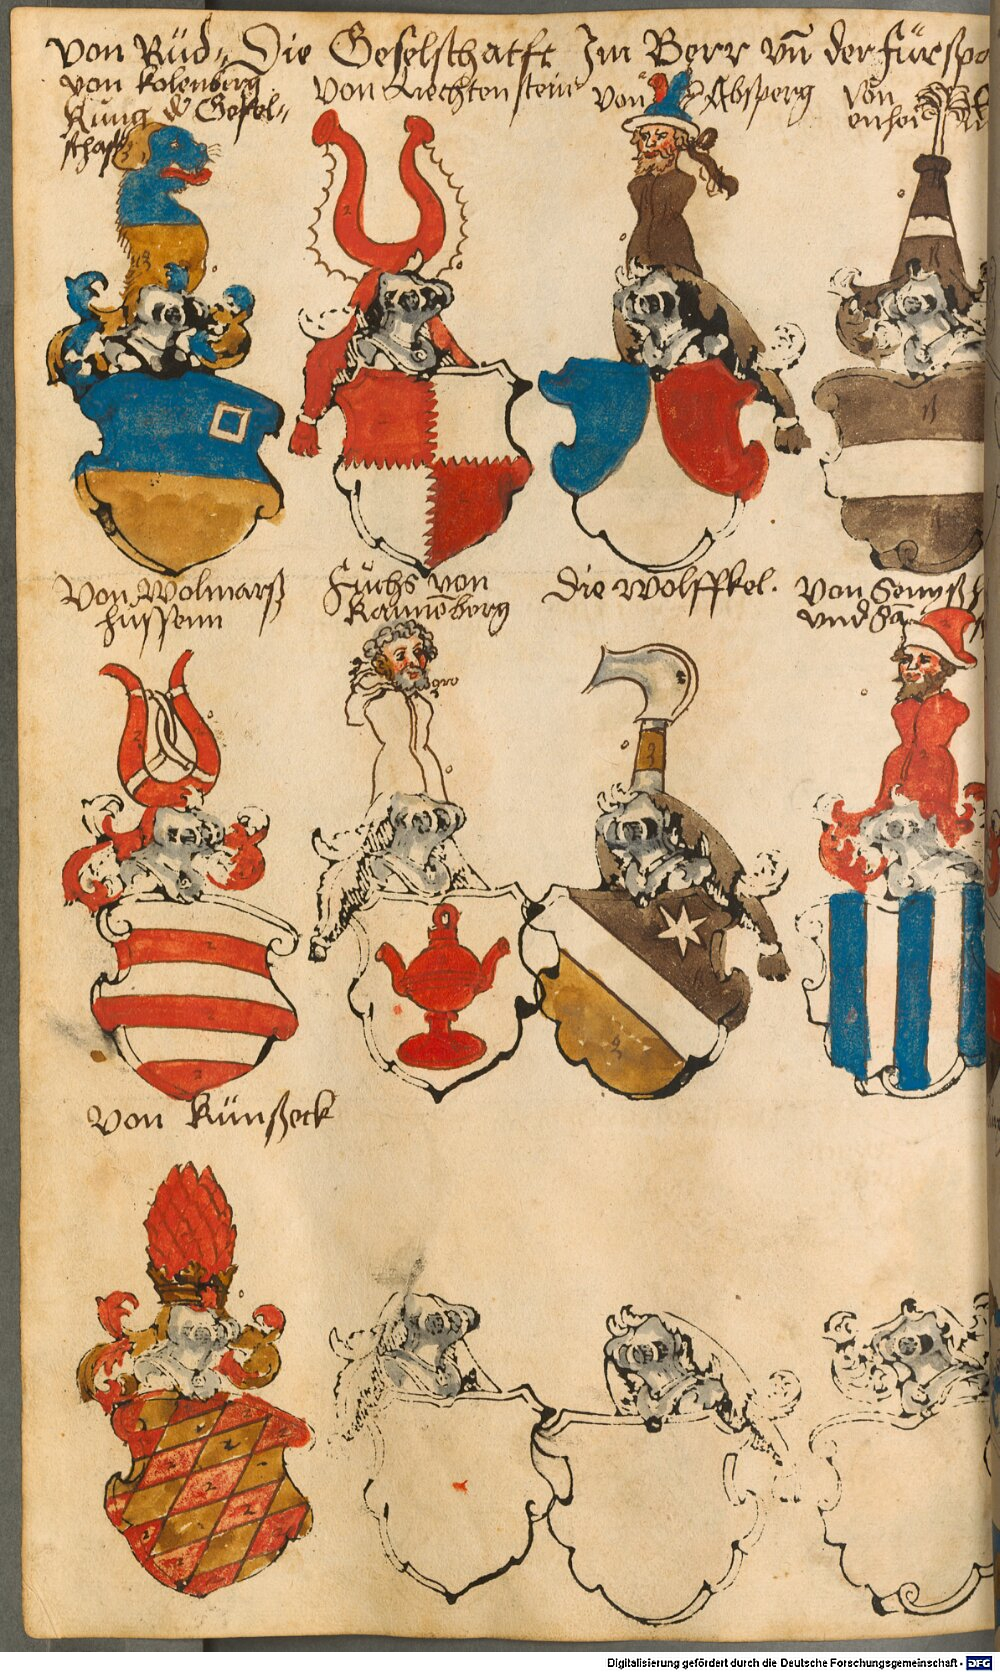 von Rüd„ Die Geselschafft Jm Berr vn̄ der fürsp
von kolenberg
Kung d Gesel„
schafft
von Liechtenstein
von Absperg
von
enhoi
Von Wolmarß
hussenn
Füchs von
Rannēberg
die Wolffkel.
von Semyß
vnd
von Künßeck
Digitalisierung gefördert durch die Deutsche Forschungsgemeinschaft - DFG